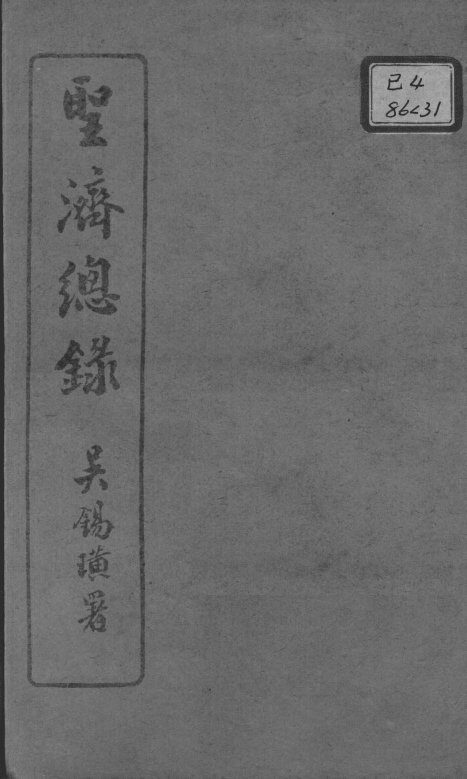 聖濟總錄
吳錫璜署
已4
86<31